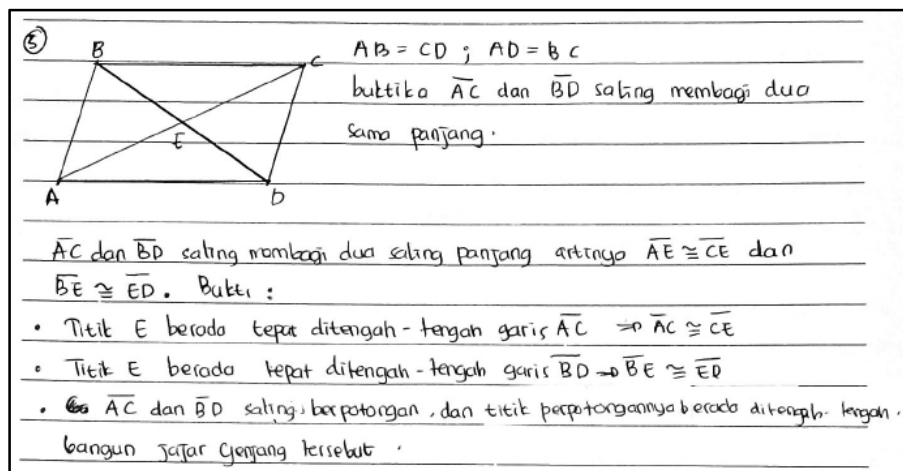 5
B
C
E
A
D
AB = CD ; AD = BC
buktika A̅C̅ dan B̅D̅ saling membagi dua
sama panjang.
A̅C̅ dan B̅D̅ saling mambagi dua saling panjang artinya A̅E̅ ≅ C̅E̅ dan
B̅E̅ ≅ E̅D̅. Bukti :
• Titik E berada tepat ditengah-tengah garis A̅C̅ ⇒ A̅C̅ ≅ C̅E̅
• Titik E berada tepat ditengah-tengah garis B̅D̅ ⇒ B̅E̅ ≅ E̅D̅
• A̅C̅ dan B̅D̅ saling berpotongan, dan titik perpotongannya berada ditengah-tengah.
bangun jajar genjang tersebut.